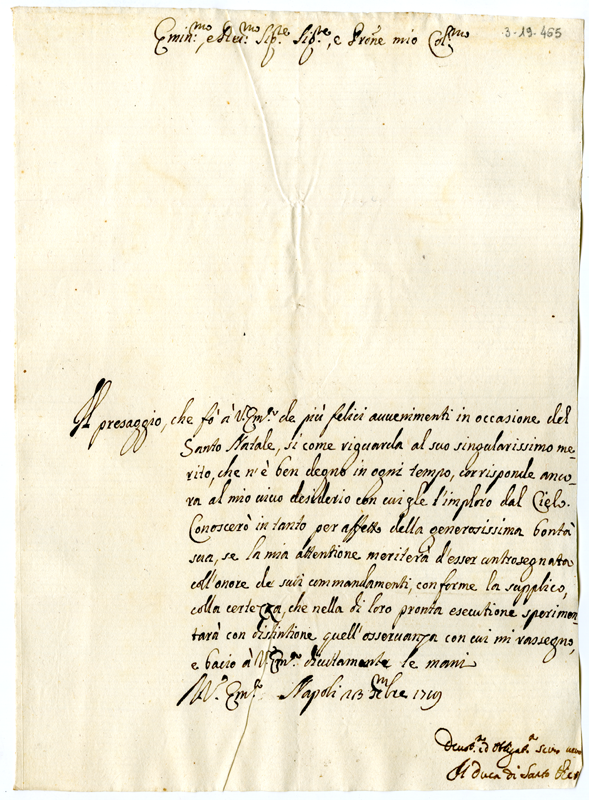 Emin.mo, e Rev.mo Sig.re Sig.re, e Prone mio Col.mo
3-19-465
Il presaggio, che fò à V. Em.a de più felici auuenimenti in occasione del
Santo Natale, si come riguarda al suo singularissimo me-
rito, che n'è ben degno in ogni tempo, corrisponde anco-
ra al mio viuo desiderio con cui gle l'imploro dal Cielo.
Conoscerò in tanto per affetto della generosissima bontà
sua, se la mia attentione meriterà d'esser contrasegnata
coll'onore de suoi commandamenti, conforme la supplico,
colla certezza, che nella di loro pronta esecutione sperimen-
tarà con distintione quell'osseruanza con cui mi rassegno,
e bacio à V. Em.a diuotamente le mani
D V. Em.a Napoli 23 Xmbre 1719
Deuot.mo ed Obligat.o seru
Il Duca di Santo